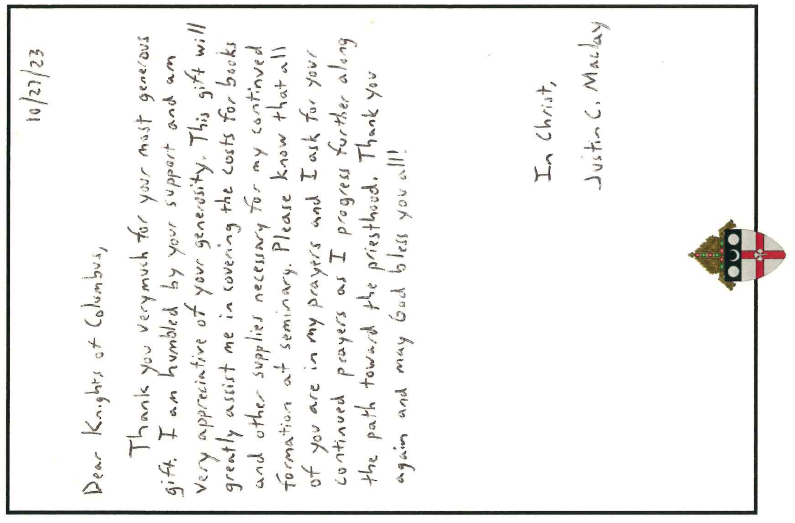 10/27/23
Dear Knights of Columbus,
Thank you very much for your most generous
gift. I am humbled by your support and am
very appreciative of your generosity. This gift will
greatly assist me in covering the costs for books
and other supplies necessary for my continued
formation at seminary. Please know that all
of you are in my prayers and I ask for your
continued prayers as I progress further along
the path toward the priesthood. Thank you
again and may God bless you all!
In Christ,
Justin C. Maclay